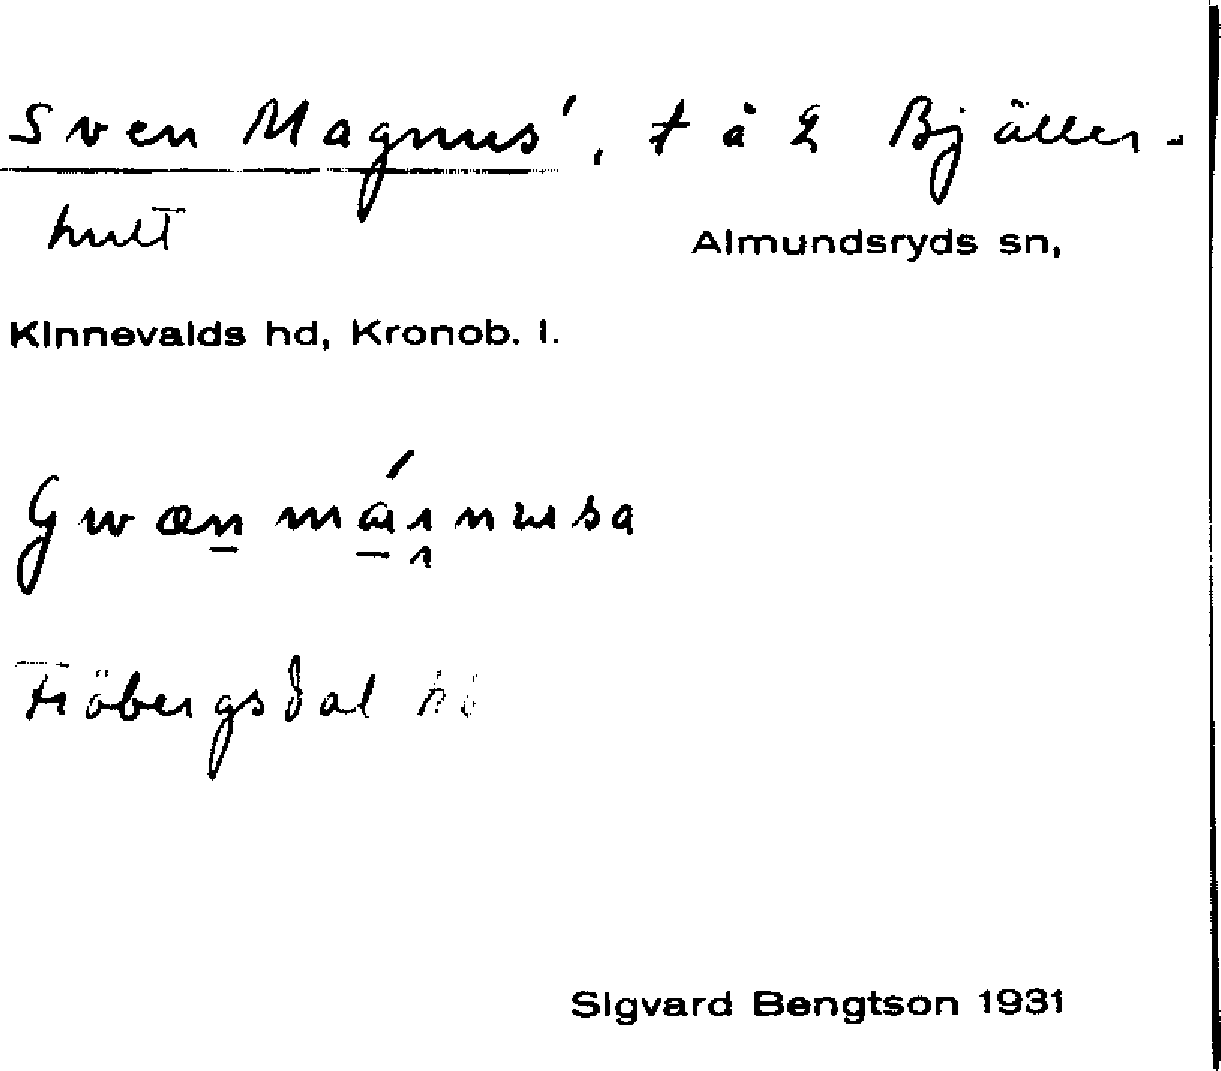 Sven Magnus', t å 2 Bjäller-
hult
Almundsryds sn,
Kinnevalds hd, Kronob. l.
Fröbergsdal
Sigvard Bengtson 1931